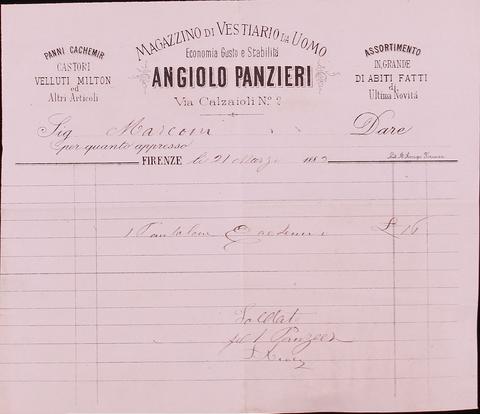 MAGAZZINO DI VESTIARIO DA UOMO
Economia Gusto e Stabilità
ANGIOLO PANZIERI
Via Calzaioli N.º 2
PANNI CACHEMIR
CASTORI
VELLUTI MILTON
ed
Altri Articoli
ASSORTIMENTO
IN GRANDE
DI ABITI FATTI
di
Ultima Novità
Sig Marconi Dare
per quanto appresso
FIRENZE li 21 Marzo 1882
1 Pantalone £ 16
Saldato